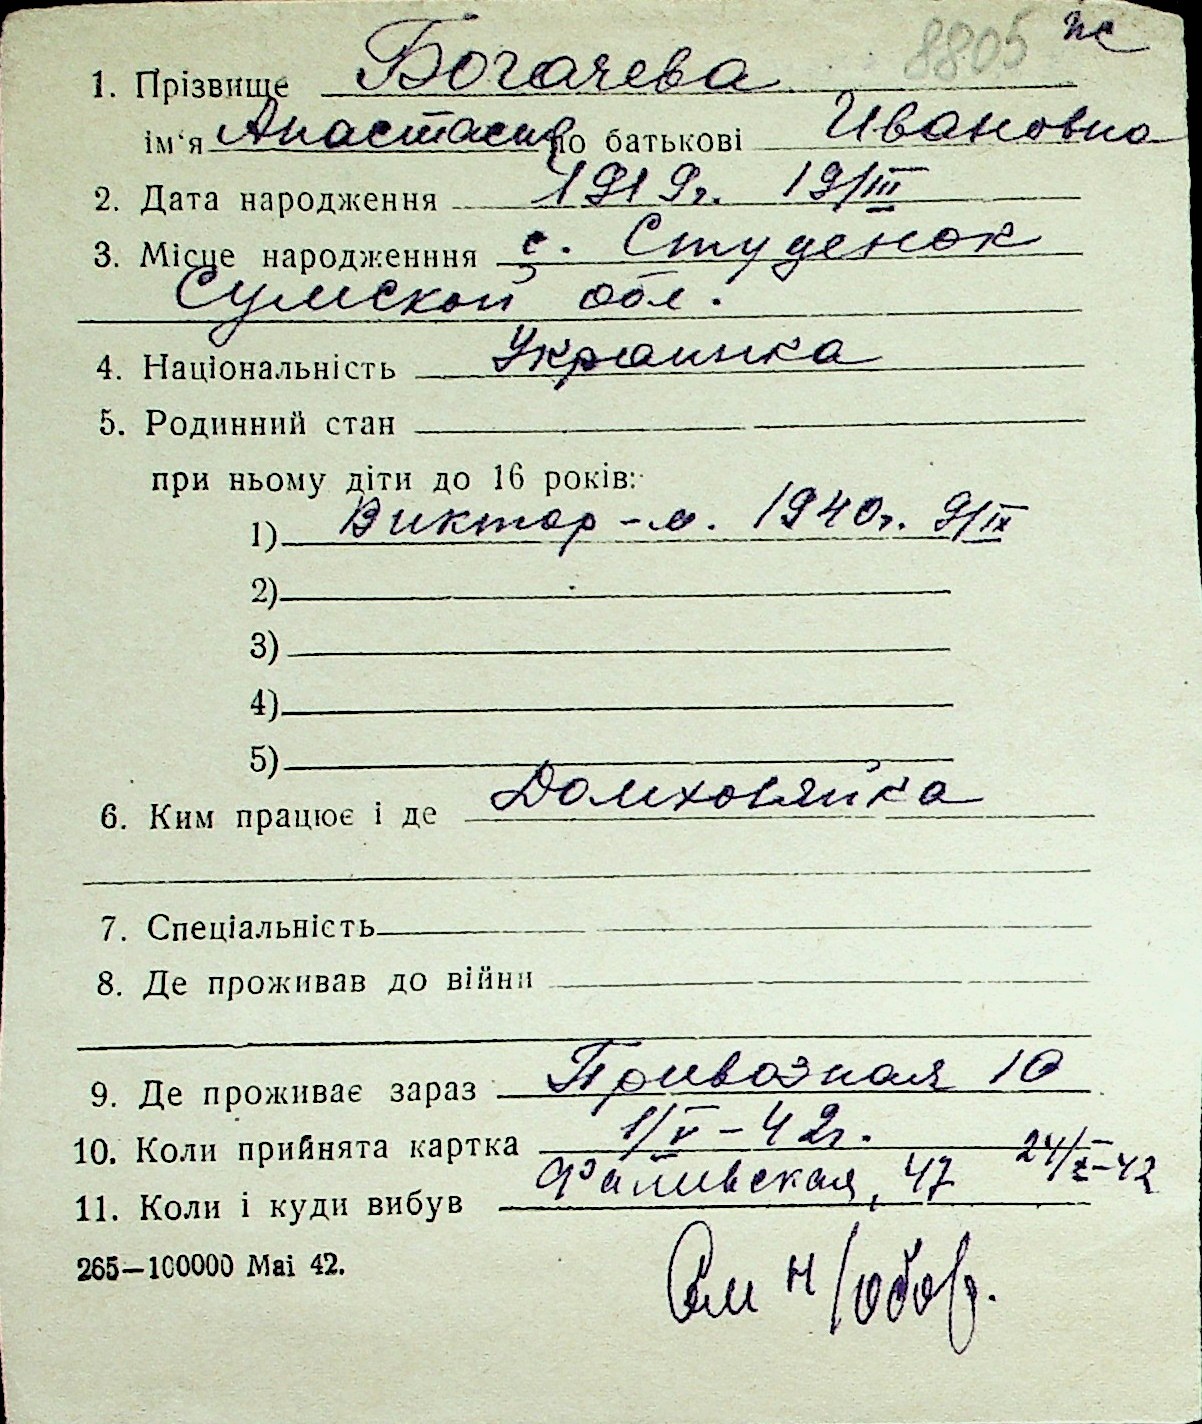 8805 пс
1. Прізвище Богачева
ім'я Анастасия по батькові Ивановна
2. Дата народження 1919г. 19/III
3. Місце народженння с. Студенок
Сумской обл.
4. Національність Украинка
5. Родинний стан
при ньому діти до 16 років:
1) Виктор - м. 1940г. 9/IX
2)
3)
4)
5)
6. Ким працює і де Домхозяйка
7. Спеціальність
8. Де проживав до війни
9. Де проживає зараз Привозная 10
10. Коли прийнята картка 1/V - 42г. 24/X-42
11. Коли і куди вибув 47
265—100000 Mai 42.
См н/обор.